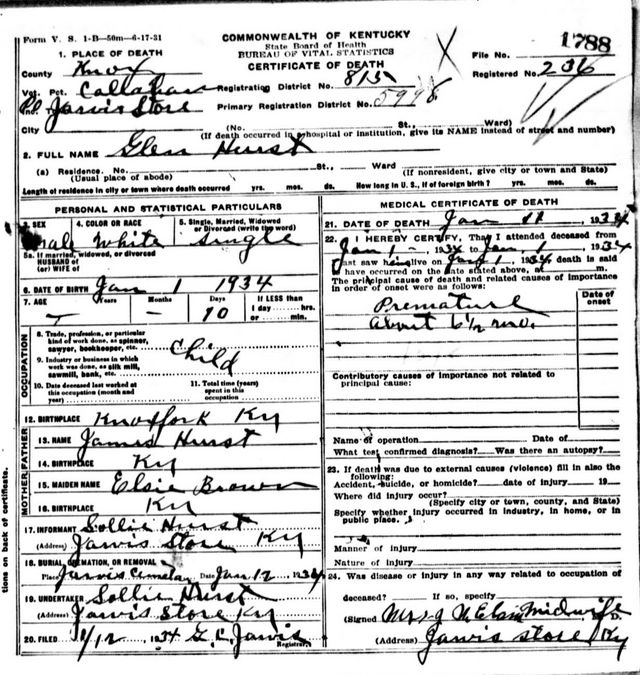 Form V. S. 1-B—50m—6-17-31
COMMONWEALTH OF KENTUCKY
State Board of Health
BUREAU OF VITAL STATISTICS
CERTIFICATE OF DEATH
File No. 1788
Registered No. 236
1. PLACE OF DEATH
County Knox
Vot. Pct. Callahan
Registration District No. 815
Jarvis Store
Primary Registration District No. 5998
City (No. St., Ward)
(If death occurred in a hospital or institution, give its NAME instead of street and number)
2. FULL NAME Glen Hurst
(a) Residence. No. St., Ward
(Usual place of abode) (If nonresident, give city or town and State)
Length of residence in city or town where death occurred yrs. mos. ds. How long in U. S., if of foreign birth? yrs. mos. ds.
PERSONAL AND STATISTICAL PARTICULARS
3. SEX 4. COLOR OR RACE 5. Single, Married, Widowed or Divorced (write the word)
Male White Single
5a. If married, widowed, or divorced
HUSBAND of
(or) WIFE of
6. DATE OF BIRTH Jan 1 1934
7. AGE Years Months Days If LESS than
— — 10 1 day hrs.
or min.
OCCUPATION
8. Trade, profession, or particular
kind of work done, as spinner,
sawyer, bookkeeper, etc. Child
9. Industry or business in which
work was done, as silk mill,
sawmill, bank, etc.
10. Date deceased last worked at
this occupation (month and
year)
11. Total time (years)
spent in this
occupation
12. BIRTHPLACE Knoxfork Ky
FATHER
13. NAME James Hurst
14. BIRTHPLACE Ky
MOTHER
15. MAIDEN NAME Elsie Brown
16. BIRTHPLACE Ky
17. INFORMANT Sollie Hurst
(Address) Jarvis Store Ky
18. BURIAL, CREMATION, OR REMOVAL
Place Jarvis Date Jan 12 1934
19. UNDERTAKER Sollie Hurst
(Address) Jarvis Store Ky
20. FILED 1/12 1934 G. C. Jarvis
Registrar.
MEDICAL CERTIFICATE OF DEATH
21. DATE OF DEATH Jan 11, 1934
22. I HEREBY CERTIFY, That I attended deceased from
Jan 1, 1934 to Jan 1, 1934
I last saw him alive on Jan 1 1934 death is said
to have occurred on the date stated above, at m.
The principal cause of death and related causes of importance
in order of onset were as follows:
Date of onset
Premature
About 6 1/2 mo.
Contributory causes of importance not related to
principal cause:
Name of operation Date of
What test confirmed diagnosis? Was there an autopsy?
23. If death was due to external causes (violence) fill in also the
following:
Accident, suicide, or homicide? date of injury 19
Where did injury occur?
(Specify city or town, county, and State)
Specify whether injury occurred in industry, in home, or in
public place.
Manner of injury
Nature of injury
24. Was disease or injury in any way related to occupation of
deceased? If so, specify
(Signed Midwife
(Address) Jarvis Store Ky
tions on back of certificate.